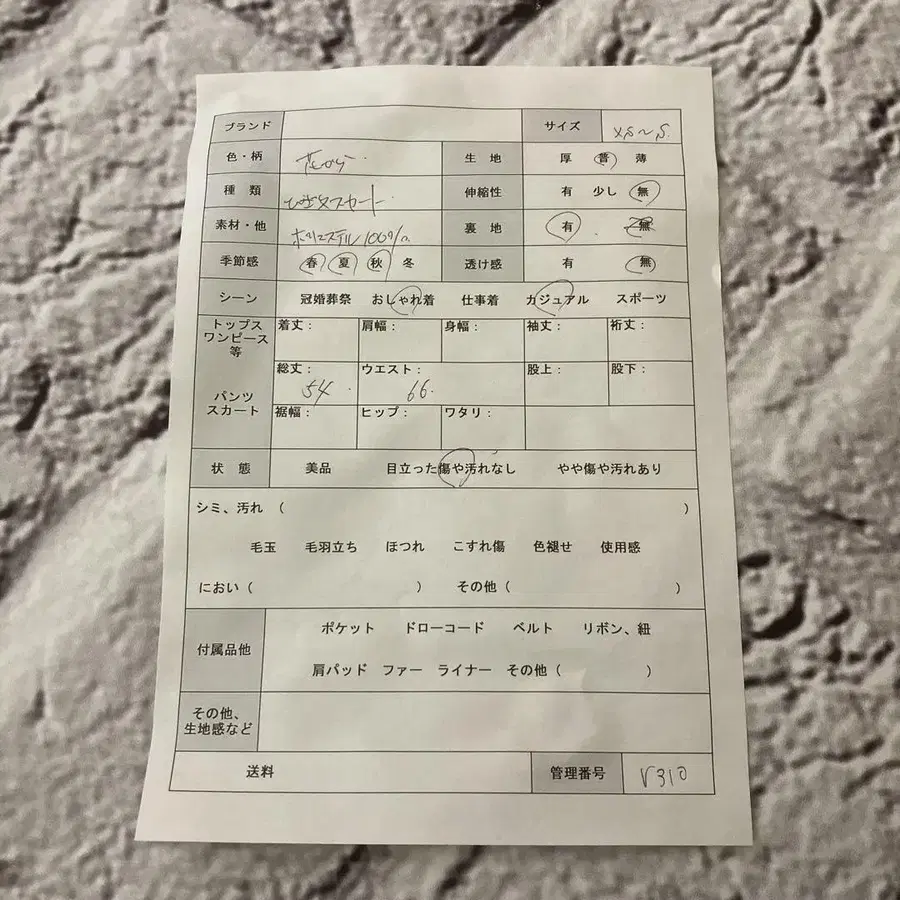 ブランド サイズ XS~S
色・柄 花がら 生地 厚 普 薄
種類 ひざ丈スカート 伸縮性 有 少し 無
素材・他 ポリエステル100% 裏地 有 無
季節感 春 夏 秋 冬 透け感 有 無
シーン 冠婚葬祭 おしゃれ着 仕事着 カジュアル スポーツ
トップス
ワンピース
等
着丈: 肩幅: 身幅: 袖丈: 裄丈:
パンツ
スカート
総丈: 54 ウエスト: 66 股上: 股下:
裾幅: ヒップ: ワタリ:
状態 美品 目立った傷や汚れなし やや傷や汚れあり
シミ、汚れ ( )
毛玉 毛羽立ち ほつれ こすれ傷 色褪せ 使用感
におい ( ) その他 ( )
付属品他 ポケット ドローコード ベルト リボン、紐
肩パッド ファー ライナー その他 ( )
その他、
生地感など
送料 管理番号 V310